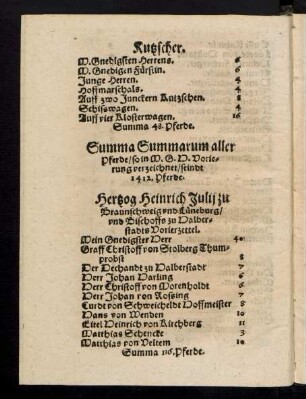 Kutzscher.
M. Gnedigsten Herrens. 6
M. Gnedigen Fürstin. 6
Junge Herren. 4
Hoffmarschals. 4
Auff zwo Junckern Kutzschen. 8
Schiffwagen. 4
Auff vier Klosterwagen. 16
Summa 48. Pferde.
Summa Summarum aller
Pferde/ so in M. G. H. Vorie-
rung verzeichnet/ seindt
1412. Pferde.
Hertzog Heinrich Julij zu
Braunschweig vnd Lüneburg/
vnd Bischoffs zu Halber-
stadts Vorierzettel.
Mein Gnedigster Herr 40.
Graff Christoff von Stolberg Thum-
probst 8
Der Dechandt zu Halberstadt 7
Herr Johan Harling 6
Herr Christoff von Horenholdt 7
Herr Johan von Rossing 7
Curdt von Schweicheldt Hoffmeister 8
Hans von Wenden 10
Eitel Heinrich von Kirchberg 11
Matthias Schencke 3
Matthias von Veltem 10
Summa 116. Pferde.